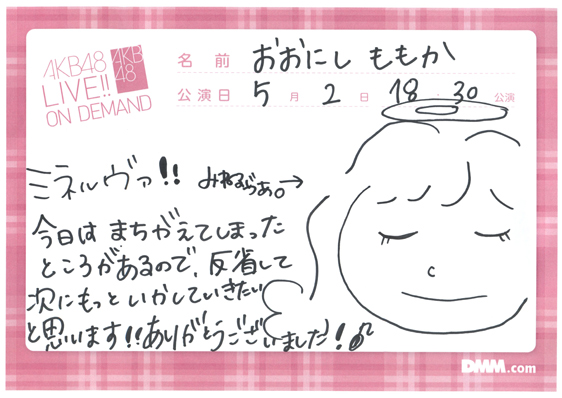 AKB48
LIVE!!
ON DEMAND
AKB
48
名前 おおにし ももか
公演日 5月2日 18 30 公演
ミネルヴァ!! みねるばぁ。→
今日は まちがえてしまった
ところがあるので、反省して
次にもっといかしていきたい
と思います!!ありがとうございました!♪
DMM.com